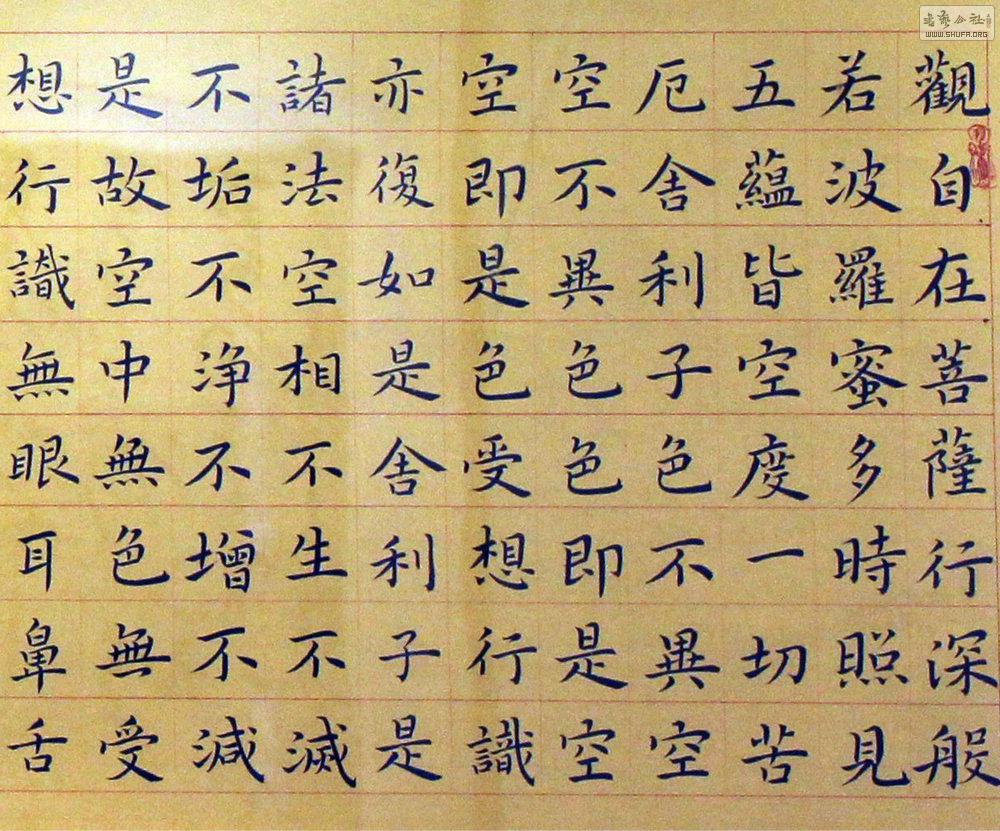 觀自在菩薩行深般
若波羅蜜多時照見
五蘊皆空度一切苦
厄舍利子色不異空
空不異色色即是空
空即是色受想行識
亦復如是舍利子是
諸法空相不生不滅
不垢不浄不增不減
是故空中無色無受
想行識無眼耳鼻舌
WWW.SHUFA.ORG